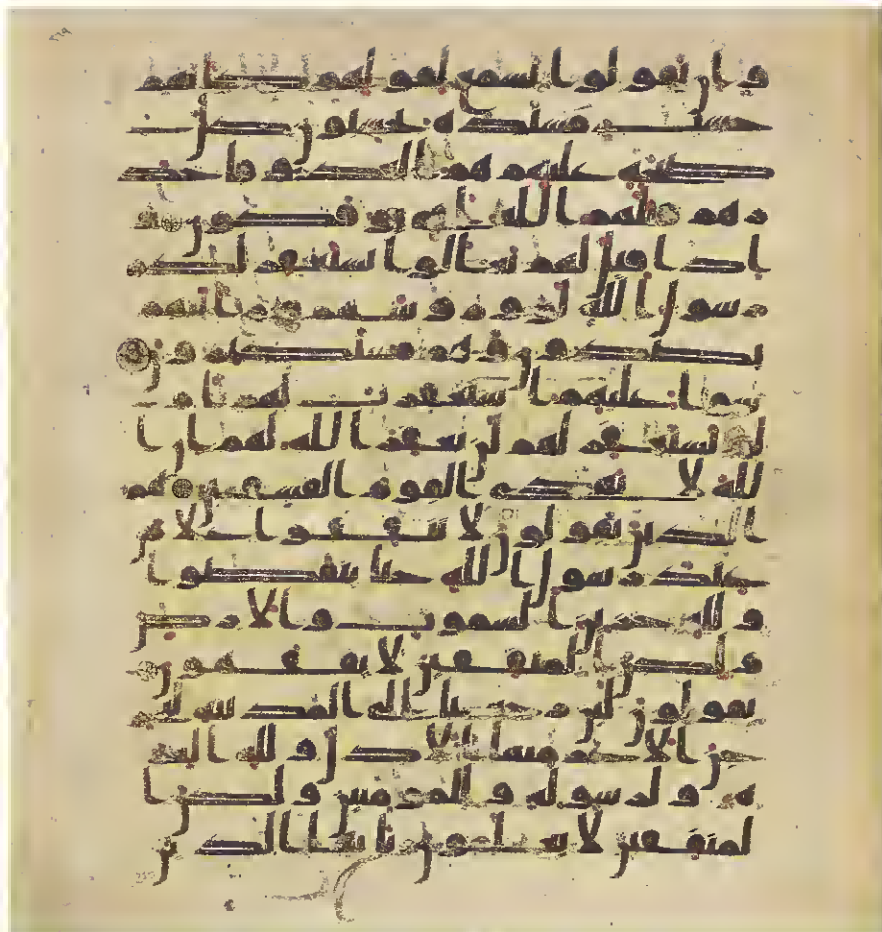 وان يقولوا تسمع لقولهم كانهم
خشب مسندة يحسبون كل
صيحة عليهم هم العدو فاحذر
هم قتلهم الله انى يوفكون و
اذا قيل لهم تعالوا يستغفر لكم
رسول الله لووا روسهم ورايتهم
يصدون وهم مستكبرون
سوا عليهم استغفرت لهم ام
لم تستغفر لهم لن يغفر الله لهم ان ا
لله لا يهدي القوم الفسقين هم
الذين يقولون لا تنفقوا على من
عند رسول الله حتى ينفضوا
ولله خزاين السموت والارض
ولكن المنفقين لا يفقهون
يقولون لين رجعنا الى المدينة ليخر
جن الاعز منها الاذل ولله العز
ة ولرسوله وللمومنين ولكن ا
لمنفقين لا يعلمون يايها الذين